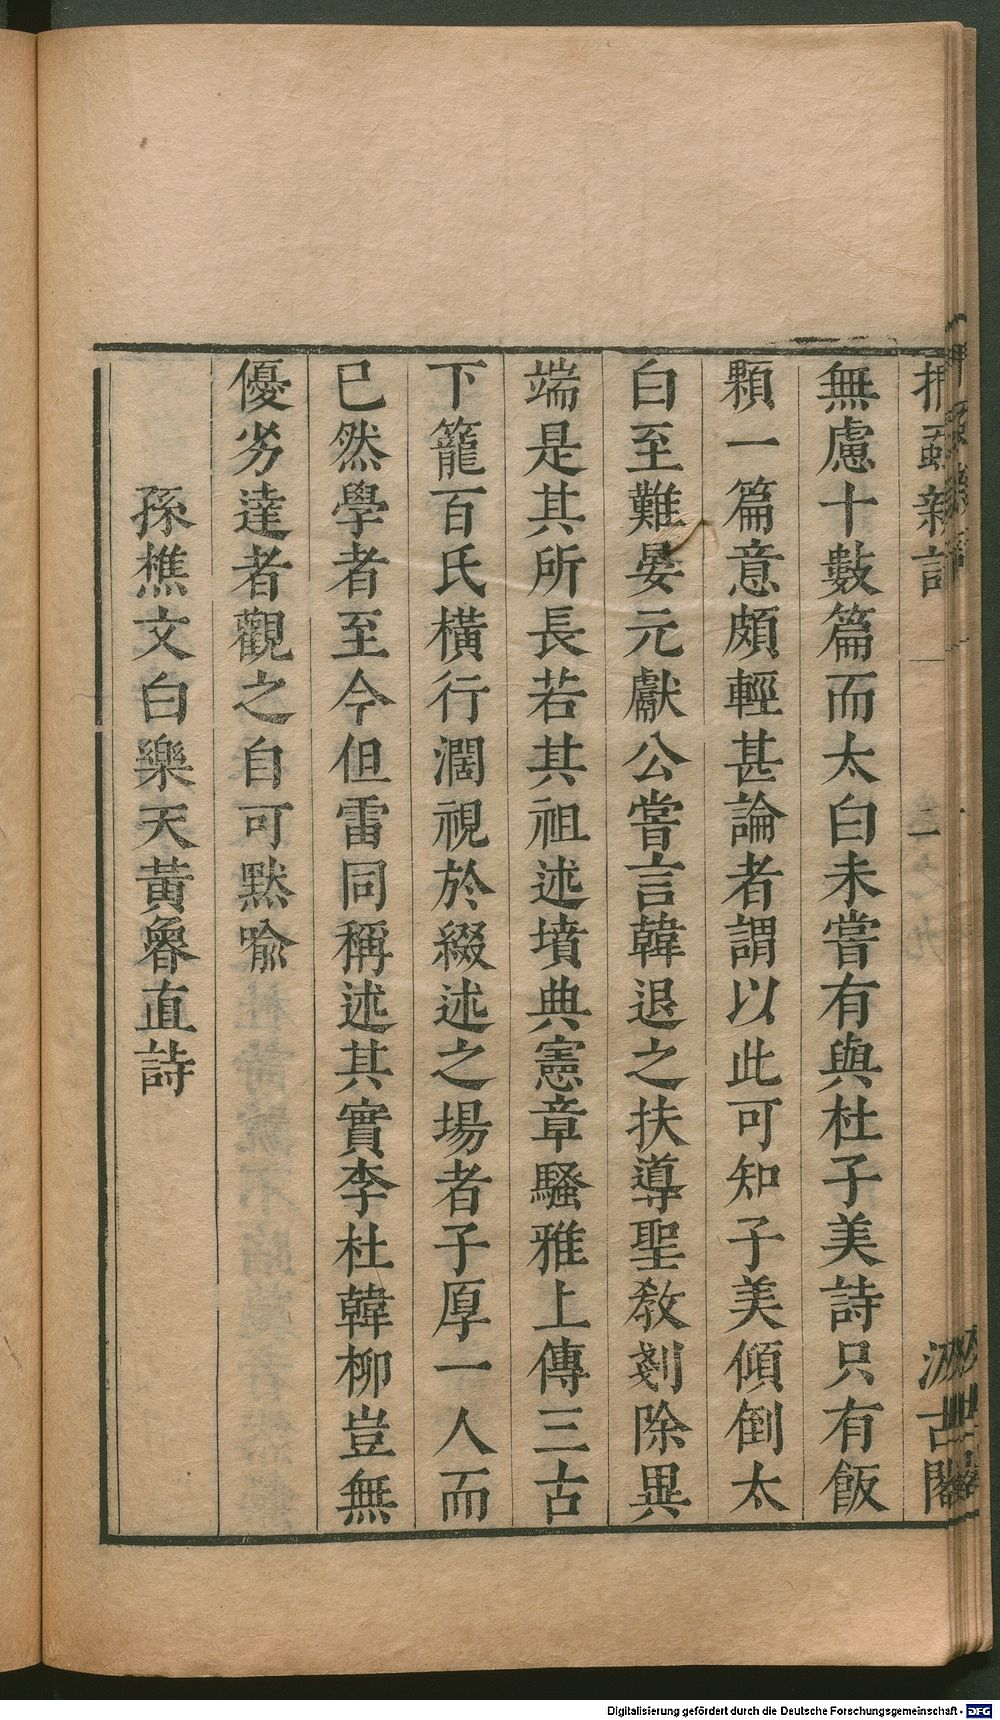 無慮十數篇而太白未嘗有與杜子美詩只有飯
顆一篇意頗輕甚論者謂以此可知子美傾倒太
白至難晏元獻公嘗言韓退之扶導聖教剗除異
端是其所長若其祖述墳典憲章騷雅上傳三古
下籠百氏橫行濶視於綴述之場者子厚一人而
已然學者至今但雷同稱述其實李杜韓柳豈無
優劣達者觀之自可默喻
孫樵文白樂天黃魯直詩
Digitalisierung gefördert durch die Deutsche Forschungsgemeinschaft - DFG